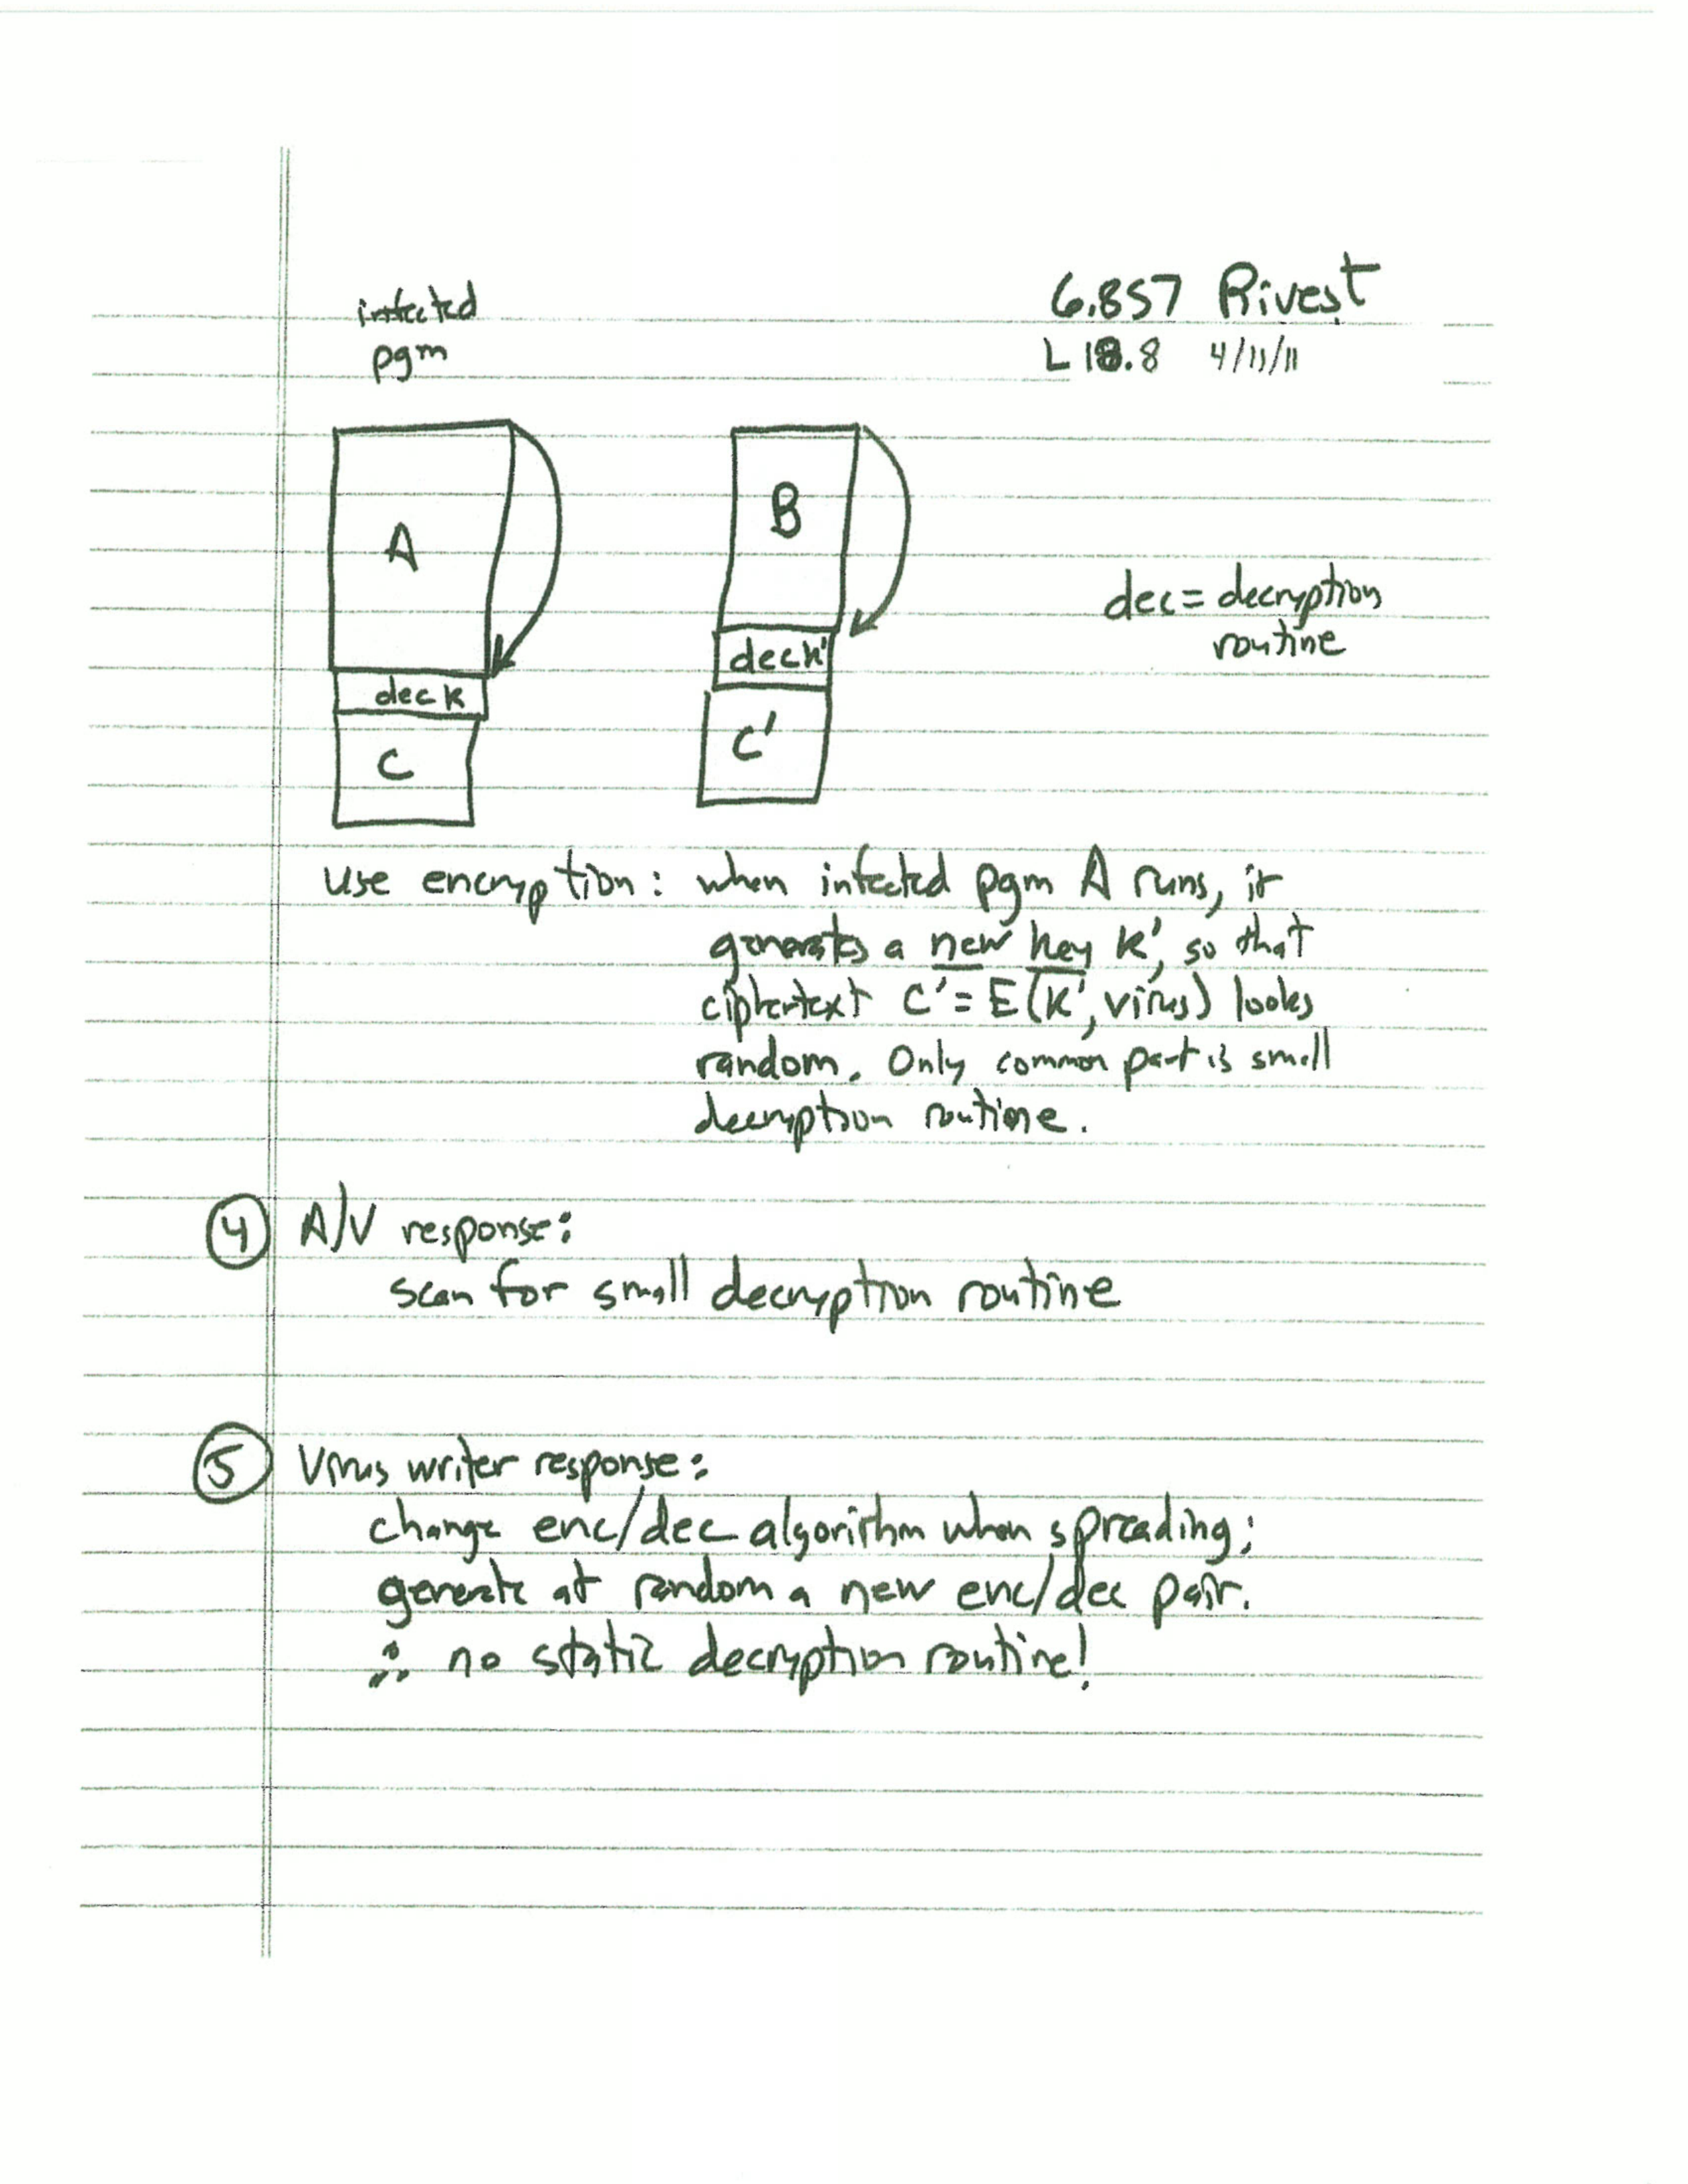 6.857 Rivest
L18.8 4/11/11
infected
pgm
A
dec k
C
B
dec k'
C'
dec = decryption
routine
use encryption: when infected pgm A runs, it
generates a new key K', so that
ciphertext C' = E(K', virus) looks
random. Only common part is small
decryption routine.
④ A/V response:
scan for small decryption routine
⑤ Virus writer response:
change enc/dec algorithm when spreading;
generate at random a new enc/dec pair.
∴ no static decryption routine!